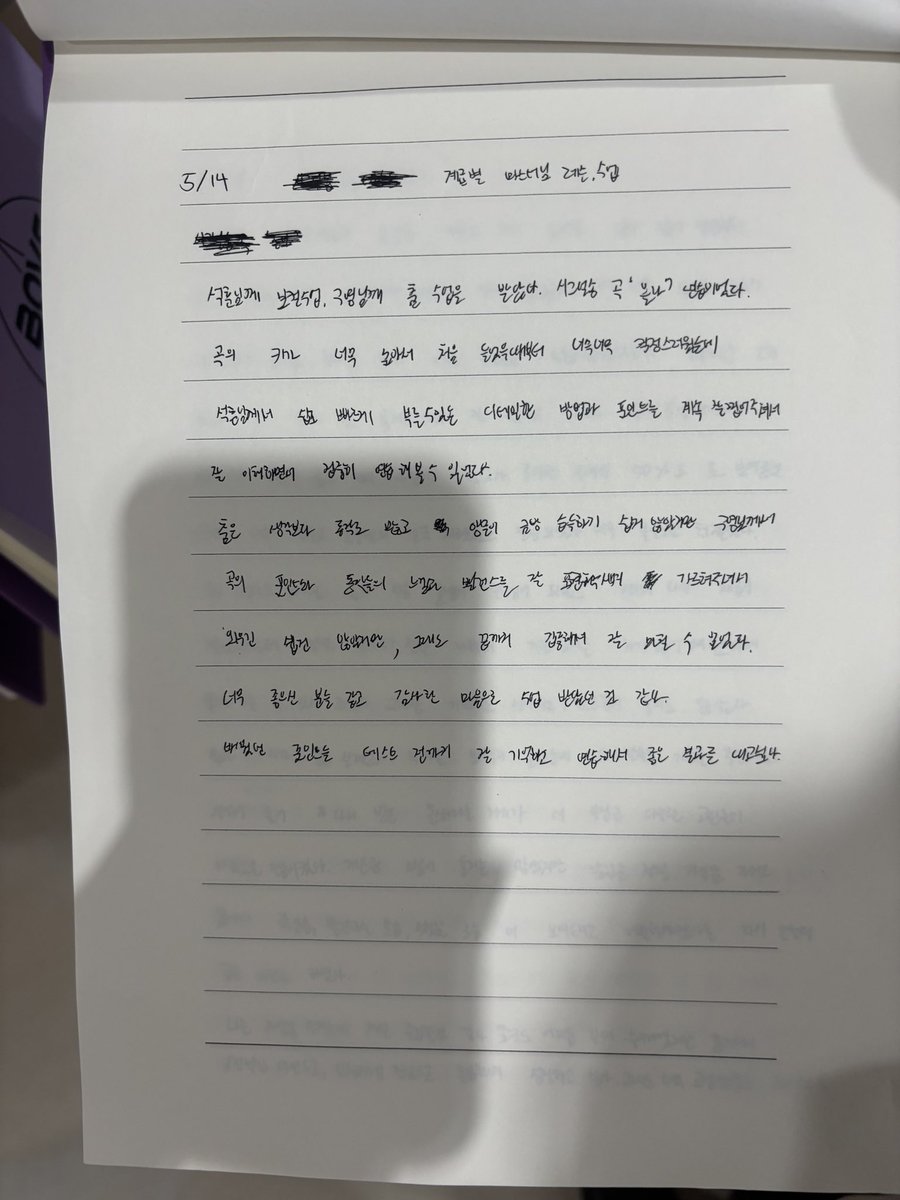 5/14 계급별 마스터님 레슨, 수업
석훈님께 보컬수업, 국영님께 춤 수업을 받았다. 시그널송 곡 '올라' 연습이었다.
곡의 키가 너무 높아서 처음 들었을때부터 너무너무 걱정스러웠는데
석훈님께서 쉽고 빠르게 부를수있는 디테일한 방법과 포인트를 계속 잘 집어주셔서
잘 이해하면서 집중히 연습 해볼 수 있었다.
춤은 생각보다 동작도 많고 양들이 금방 습득하기 쉽지 않았지만 국영님께서
곡의 포인트와 동작들의 느낌과 밸런스를 잘 가르쳐주셔서
쉽진 않았지만, 그래도 끝까지 집중해서 잘 배울 수 있었다.
너무 좋으신 분들 같고 감사한 마음으로 수업 받았던 것 같다.
배웠던 포인트들 테스트 전까지 잘 기억하고 연습해서 좋은 결과를 내고싶다.
BOYS